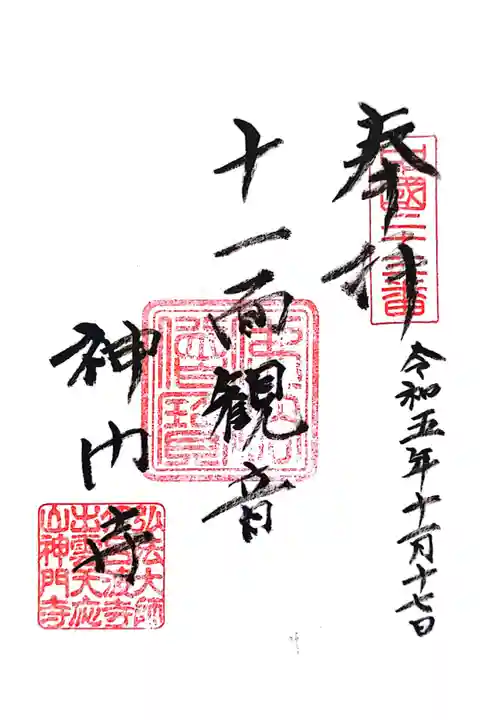 奉拝
中國二十三番
令和五年十一月十七日
十一面観音
神門寺
弘法大師
出雲天応
山神門寺